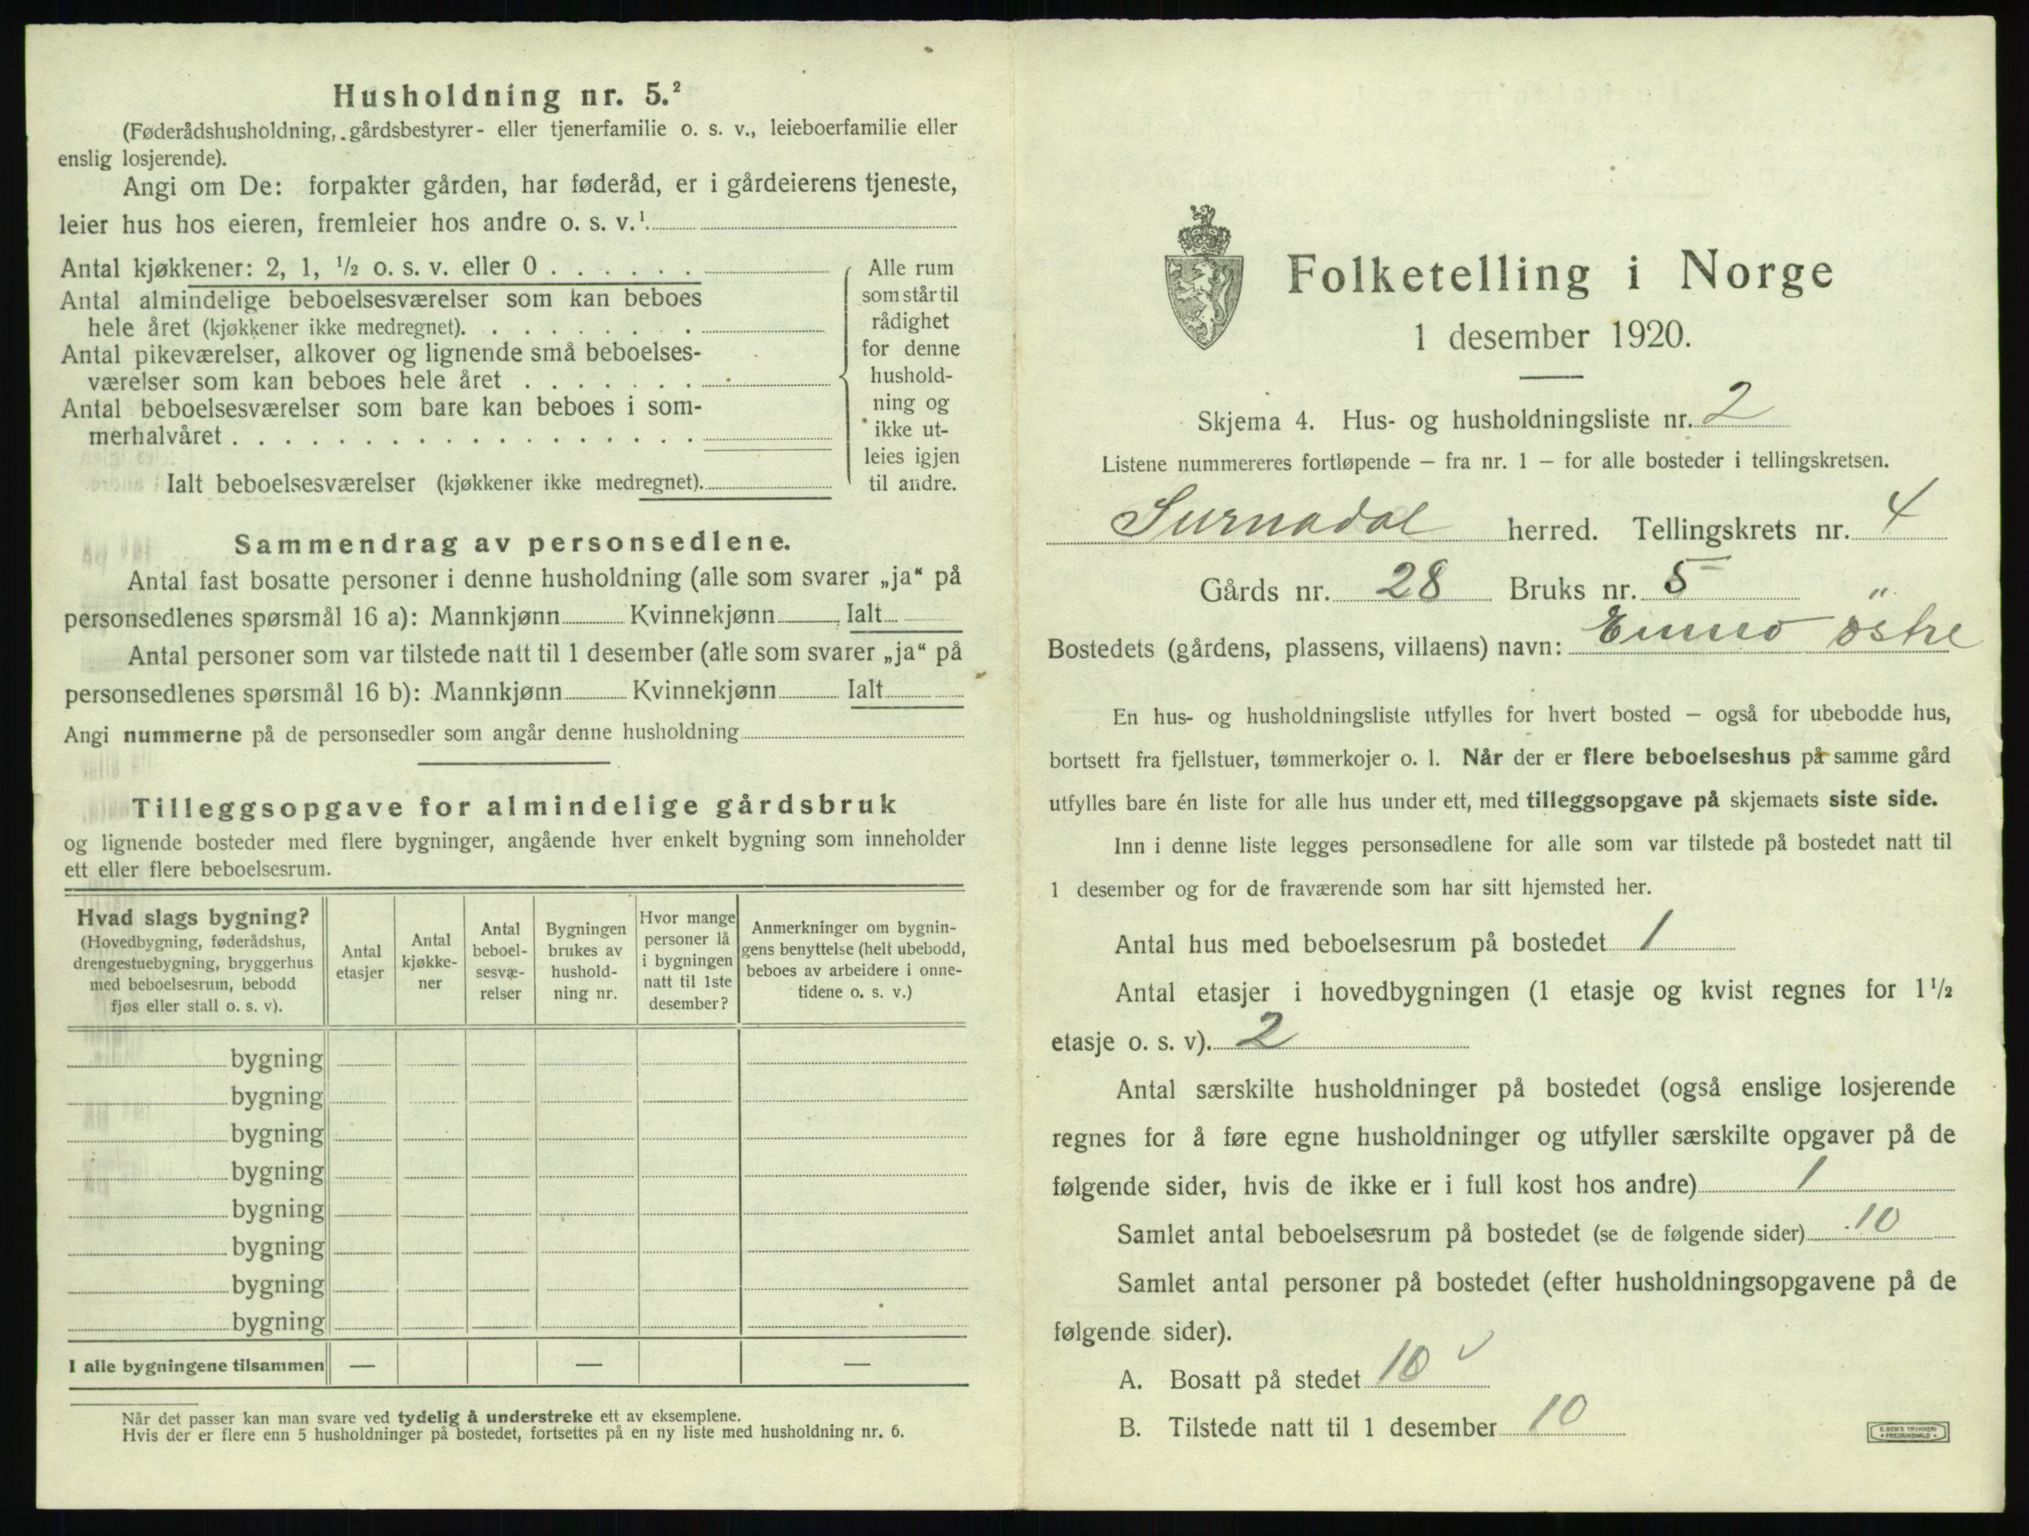 Husholdning nr. 5.²
(Føderådshusholdning, gårdsbestyrer- eller tjenerfamilie o. s. v., leieboerfamilie eller
enslig losjerende).
Angi om De: forpakter gården, har føderåd, er i gårdeierens tjeneste,
leier hus hos eieren, fremleier hos andre o. s. v.¹
Antal kjøkkener: 2, 1, ½ o. s. v. eller 0
Antal almindelige beboelsesværelser som kan beboes
hele året (kjøkkener ikke medregnet).
Antal pikeværelser, alkover og lignende små beboelses-
værelser som kan beboes hele året
Antal beboelsesværelser som bare kan beboes i som-
merhalvåret
Ialt beboelsesværelser (kjøkkener ikke medregnet).
Alle rum
som står til
rådighet
for denne
hushold-
ning og
ikke ut-
leies igjen
til andre.
Sammendrag av personsedlene.
Antal fast bosatte personer i denne husholdning (alle som svarer „ja“ på
personsedlenes spørsmål 16 a): Mannkjønn Kvinnekjønn Ialt
Antal personer som var tilstede natt til 1 desember (alle som svarer „ja“ på
personsedlenes spørsmål 16 b): Mannkjønn Kvinnekjønn Ialt
Angi nummerne på de personsedler som angår denne husholdning
Tilleggsopgave for almindelige gårdsbruk
og lignende bosteder med flere bygninger, angående hver enkelt bygning som inneholder
ett eller flere beboelsesrum.
Hvad slags bygning?
(Hovedbygning, føderådshus,
drengestuebygning, bryggerhus
med beboelsesrum, bebodd
fjøs eller stall o. s. v).
Antal
etasjer
Antal
kjøkke-
ner
Antal
beboel-
sesvæ-
relser
Bygningen
brukes av
hushold-
ning nr.
Hvor mange
personer lå
i bygningen
natt til 1ste
desember?
Anmerkninger om bygnin-
gens benyttelse (helt ubebodd,
beboes av arbeidere i onne-
tidene o. s. v.)
bygning
bygning
bygning
bygning
bygning
bygning
bygning
bygning
I alle bygningene tilsammen — — —
Når det passer kan man svare ved tydelig å understreke ett av eksemplene.
Hvis der er flere enn 5 husholdninger på bostedet, fortsettes på en ny liste med husholdning nr. 6.
Folketelling i Norge
1 desember 1920.
Skjema 4. Hus- og husholdningsliste nr. 2
Listene nummereres fortløpende – fra nr. 1 – for alle bosteder i tellingskretsen.
Surnadal herred. Tellingskrets nr. 4
Gårds nr. 28 Bruks nr. 5
Bostedets (gårdens, plassens, villaens) navn: østre
En hus- og husholdningsliste utfylles for hvert bosted – også for ubebodde hus,
bortsett fra fjellstuer, tømmerkojer o. l. Når der er flere beboelseshus på samme gård
utfylles bare én liste for alle hus under ett, med tilleggsopgave på skjemaets siste side.
Inn i denne liste legges personsedlene for alle som var tilstede på bostedet natt til
1 desember og for de fraværende som har sitt hjemsted her.
Antal hus med beboelsesrum på bostedet 1
Antal etasjer i hovedbygningen (1 etasje og kvist regnes for 1½
etasje o. s. v). 2
Antal særskilte husholdninger på bostedet (også enslige losjerende
regnes for å føre egne husholdninger og utfyller særskilte opgaver på de
følgende sider, hvis de ikke er i full kost hos andre) 1
Samlet antal beboelsesrum på bostedet (se de følgende sider) 10
Samlet antal personer på bostedet (efter husholdningsopgavene på de
følgende sider).
A. Bosatt på stedet 10 ✓
B. Tilstede natt til 1 desember 10